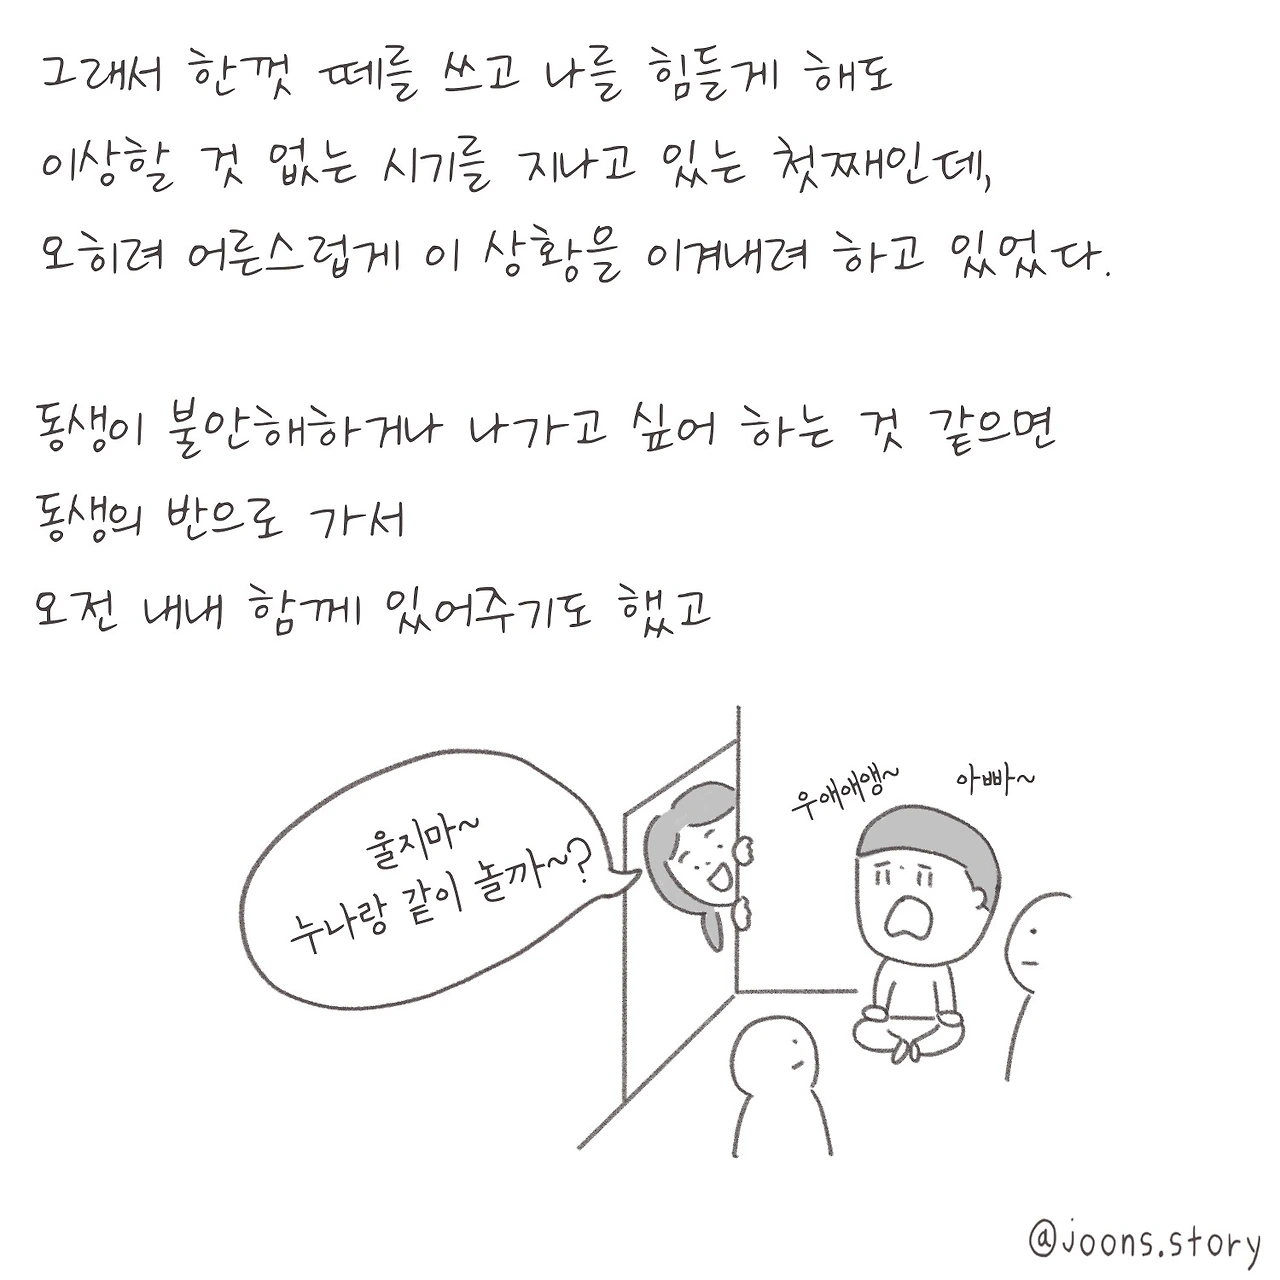 그래서 한껏 떼를 쓰고 나를 힘들게 해도
이상할 것 없는 시기를 지나고 있는 첫째인데,
오히려 어른스럽게 이 상황을 이겨내려 하고 있었다.
동생이 불안해하거나 나가고 싶어 하는 것 같으면
동생의 반으로 가서
오전 내내 함께 있어주기도 했고
우애애앵~
아빠~
울지마~
누나랑 같이 놀까~?
@joons.story